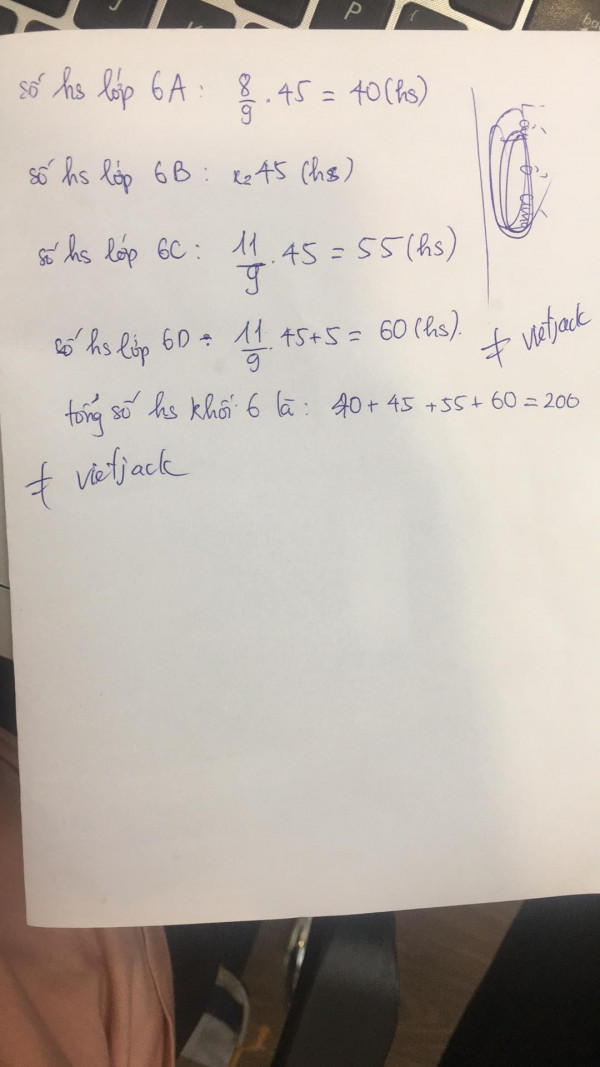 số hs lớp 6A: 8/9 . 45 = 40 (hs)
số hs lớp 6B: 45 (hs)
số hs lớp 6C: 11/9 . 45 = 55 (hs)
số hs lớp 6D: 11/9 . 45+5 = 60 (hs).
≠ vietjack
tổng số hs khối 6 là: 40 + 45 + 55 + 60 = 200
≠ vietjack
P